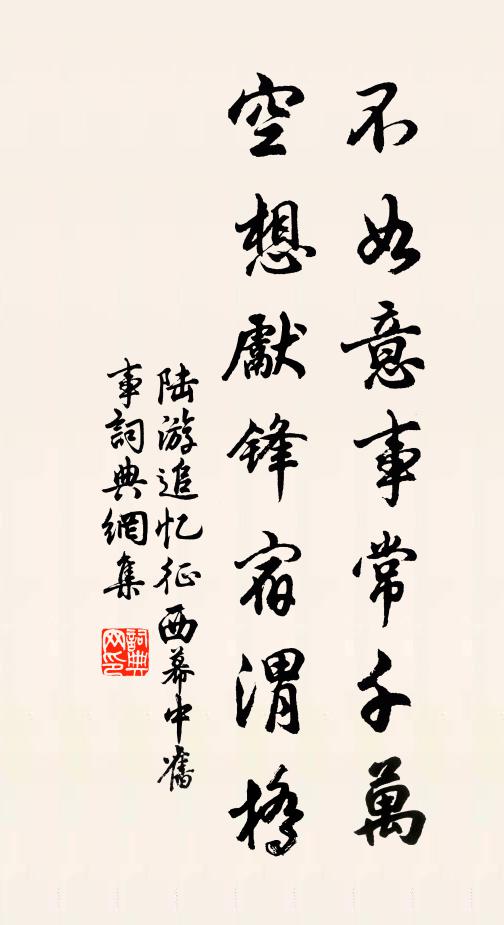 不如意事常千萬
空想獻鋒宿渭橋
陆游追忆征西幕中舊
事詞典網集
詞典
网印